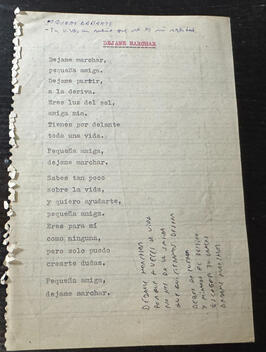 DEJAME MARCHAR
Dejame marchar,
pequeña amiga.
Dejame partir,
a la deriva.
Eres luz del sol,
amiga mia.
Tienes por delante
toda una vida.
Pequeña amiga,
dejame marchar.
Sabes tan poco
sobre la vida,
y quiero ayudarte,
pequeña amiga.
Eres para mi
como ninguna,
pero solo puedo
crearte dudas.
Pequeña amiga,
dejame marchar.
DEJAME MARCHAR
PORQUE A VECES LA VIDA
DEJAME MARCHAR